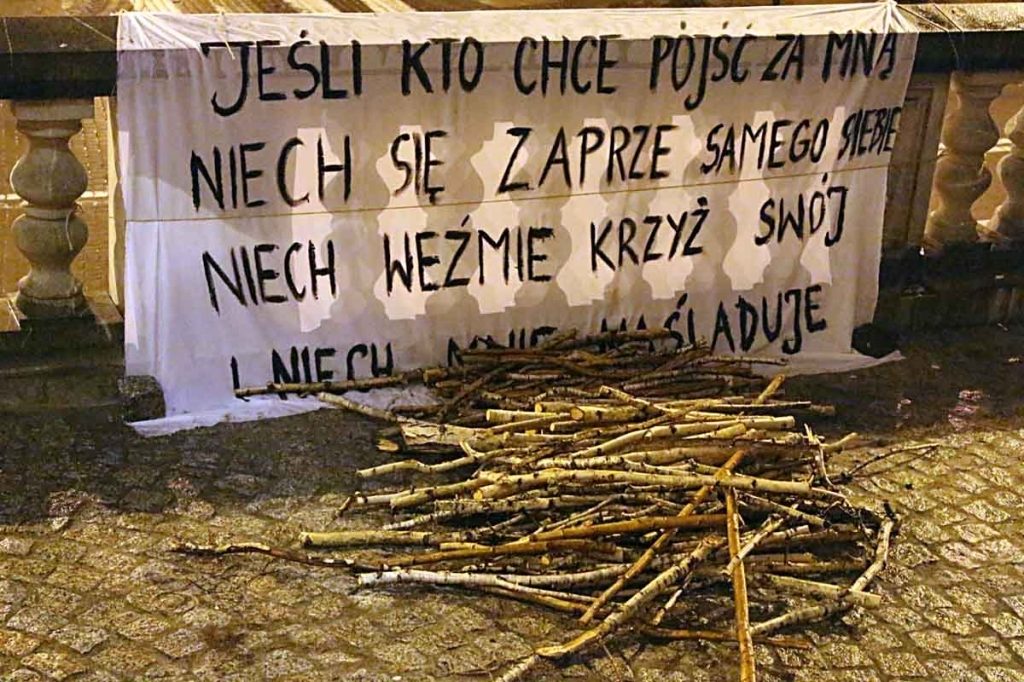 JEŚLI KTO CHCE PÓJŚĆ ZA MNĄ
NIECH SIĘ ZAPRZE SAMEGO SIEBIE
NIECH WEŹMIE KRZYŻ SWÓJ
I NIECH MNIE NAŚLADUJE